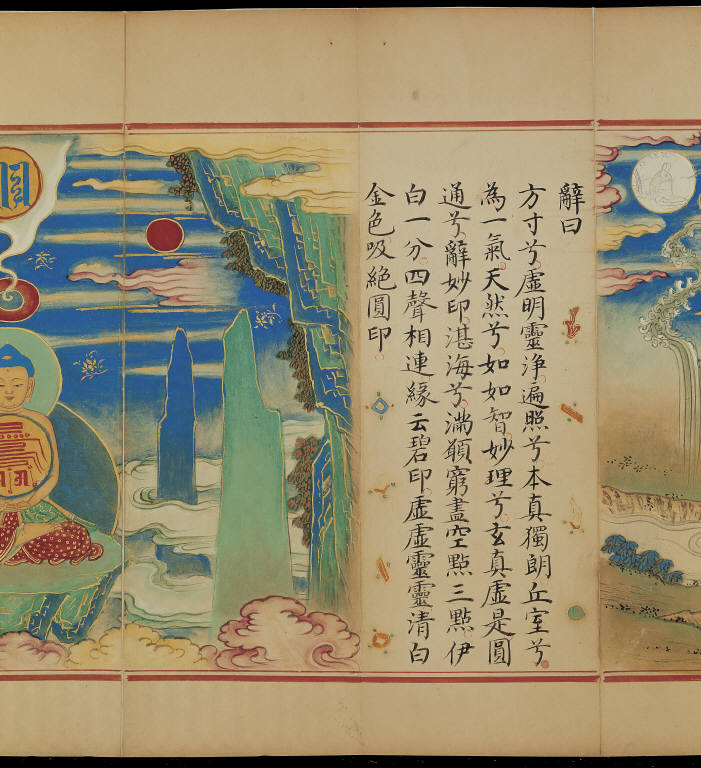 辭曰
方寸兮虛明靈淨遍照兮本真獨朗丘室兮
為一氣天然兮如如智妙理兮玄真虛是圓
通兮辭妙印湛海兮滿願窮盡空點三點伊
白一分四聲相連緣云碧印虛虛靈靈清白
金色吸絕圓印